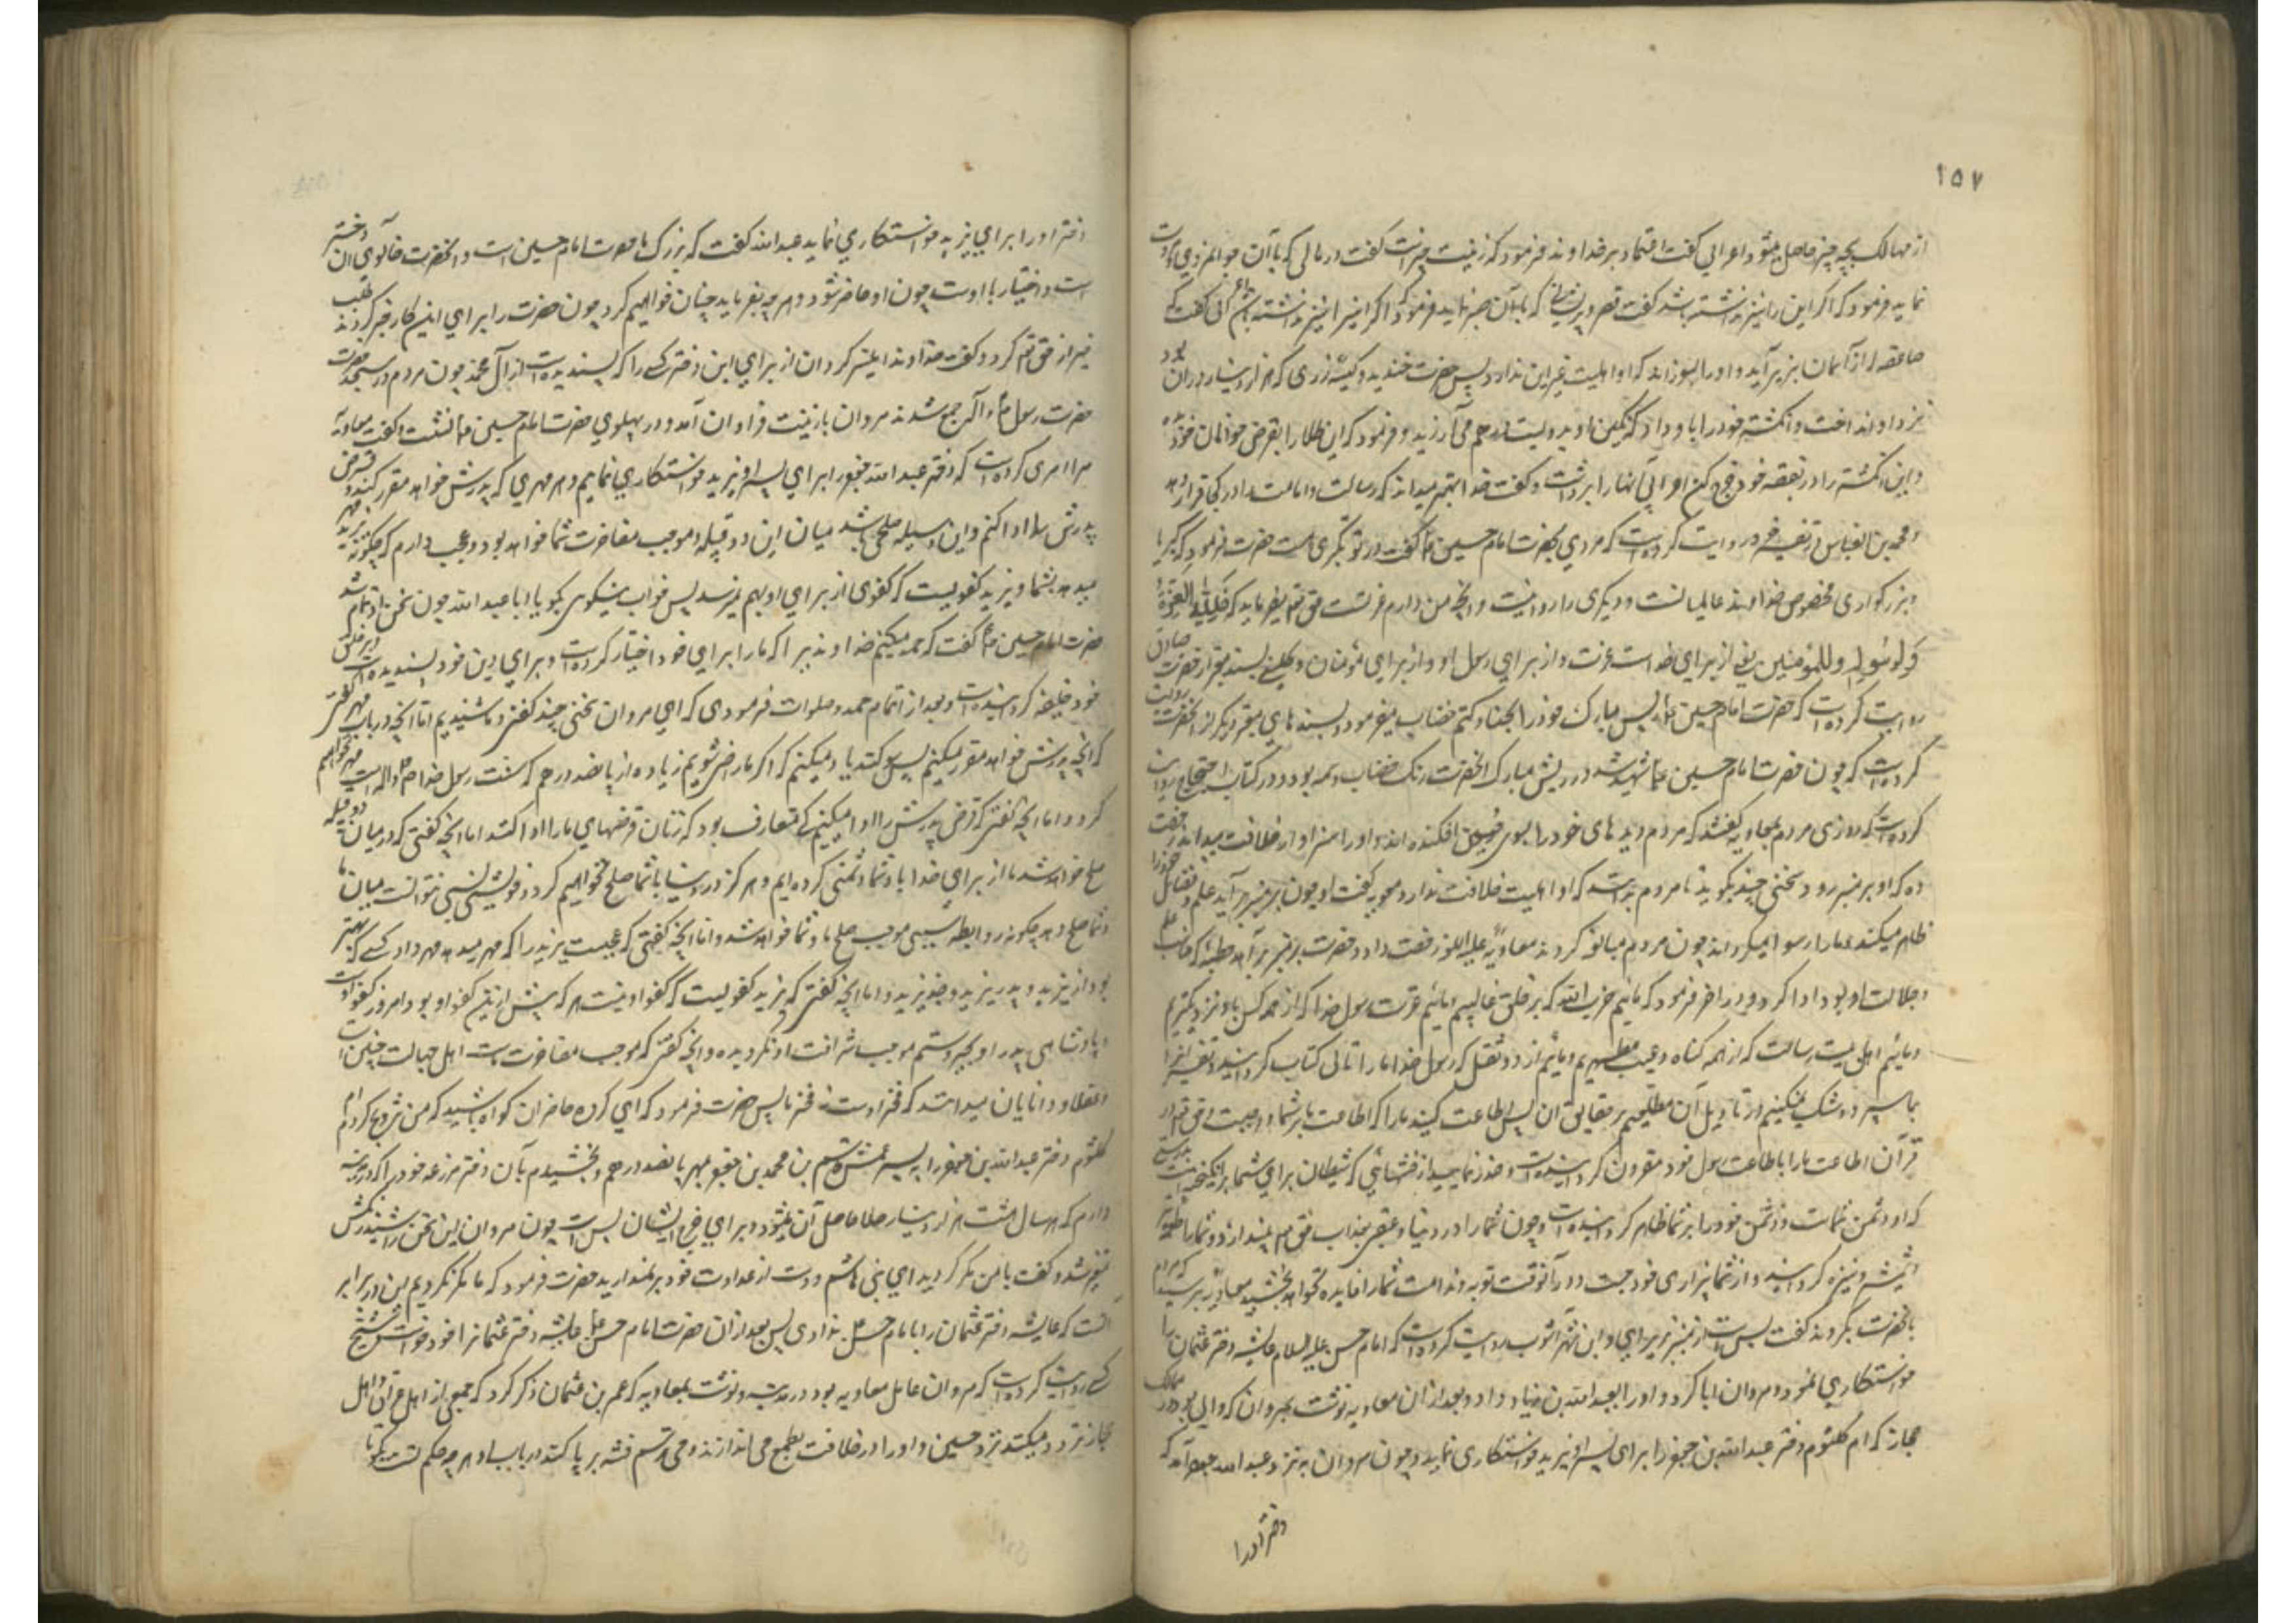 ١٥٧
از مهالک بچه چیز حاصل میشود اعرابی گفت اعتماد بر خداوند فرمود که زینت چیزست گفت در مالی که با آن جوانمردی و مروت
نماید فرمود که اگر این را نیز نداشته باشد گفت فقر و پریشانی که با آن صبر نماید فرمود که اگر اینرا نیز نداشته باشد اعرابی گفت که
صاعقه از آسمان بزیر آید و او را بسوزاند که او اهلیت غیر این ندارد پس حضرت خندید و کیسهٔ زری که هزار دینار در آن بود
نزد او انداخت و انگشتر خود را باو داد که نگین او بدویست درهم می ارزید و فرمود که این طلا را بقرض خواهان خود ده
و این انگشتر را در نفقه خود خرج کن اعرابی آنها را برداشت و گفت خدا بهتر میداند که رسالت و امامت را در کجا قرار دهد
و محمد بن العباس در تفسیر خود روایت کرده است که مردی بحضرت امام حسین ع گفت در تو تکبری هست حضرت فرمود که کبریا
و بزرگواری مخصوص خداوند عالمیانست و دیگری را روا نیست و آنچه من دارم عزتست حق تع میفرماید که فلله العزة
و لرسوله و للمؤمنین یعنی از برای خداست عزت و از برای رسول او و از برای مؤمنان و کلینی بسند معتبر از حضرت صادق
روایت کرده است که حضرت امام حسین ع ریش مبارک خود را بحنا و کتم خضاب میفرمود و بسندهای معتبر دیگر از آنحضرت روایت
کرده است که چون حضرت امام حسین ع شهید شد در ریش مبارک آنحضرت رنگ خضاب وسمه بود و در کتاب احتجاج روایت
کرده است که روزی مردم بمعاویه گفتند که مردم دیدهای خود را بسوی حسین افکنده اند و او را سزاوار خلافت میدانند رخصت
ده که او بر منبر رود و سخنی چند بگوید تا مردم بدانند که او اهلیت خلافت ندارد معویه گفت او چون بر منبر بر آید علم و فضائل خود را
ظاهر میکند و ما را رسوا میگرداند چون مردم مبالغه کردند معاویه علیه اللعنه رخصت داد و حضرت بر منبر بر آمد و خطبهٔ که مناسب علم
و جلالت او بود ادا کرد و در آخر فرمود که مائیم حزب الله که بر خلق غالبیم و مائیم عترت رسول خدا که از همه کس باو نزدیکتریم
و مائیم اهل بیت رسالت که از همه گناه و عیب مطهریم و مائیم از دو ثقل که رسول خدا ما را ثانی کتاب گردانید و تفسیر آنرا
بما سپرد و شک نمیکنیم در تأویل آن و مطلعیم بر حقایق آن پس اطاعت کنید ما را که اطاعت ما بر شما واجبست حق تع در
قرآن اطاعت ما را با طاعت رسول خود مقرون گردانیده است و حذر نمایید از فتنهائی که شیطان برای شما برانگیخته است بدرستی
که او دشمن شماست و دشمنی خود را بر شما ظاهر گردانیده است و چون شما را در دنیا و عقبی بعذاب حق تع میاندازد و شما را طعمه
شمشیر و نیزه گردانید و از شما بیزاری خود جست و در آنوقت توبه و ندامت شما را فایده نخواهد بخشید معاویه ترسید که مردم
بآنحضرت بگروند گفت بس است از منبر بزیر بیا و ابن شهر آشوب روایت کرده است که امام حسن علیه السلام عایشه دختر عثمان را
خواستگاری نمود و مروان ابا کرد و او را بعبدالله بن زیاد داد و بعد از آن معاویه نوشت بمروان که والی بود در ممالک
حجاز که ام کلثوم دختر عبدالله بن جعفر را برای پسر او یزید خواستگاری نماید و چون مروان به نزد عبدالله جعفر آمد که
دختر او را
دختر او را برای یزید خواستگاری نماید عبدالله گفت که بزرگ ما حضرت امام حسین است و آنحضرت خالوی آن دختر
است و اختیار با اوست چون او حاضر شود و هر چه بفرماید چنان خواهیم کرد چون حضرت را برای این کار خبر کردند طلب
خیر از حق تع کرد و گفت خداوندا میسر گردان از برای این دختر کسی را که پسندیده است از آل محمد چون مردم در مسجد حضرت
حضرت رسول ص و آله جمع شدند مروان با زینت فراوان آمد و در پهلوی حضرت امام حسین ع نشست و گفت معاویه
مرا امری کرده است که دختر عبدالله جعفر را برای پسر او یزید خواستگاری نمایم و هر مهری که پدرش خواهد مقرر کنم و قرض
پدرش را ادا کنم و این وسیله صلحی باشد میان این دو قبیله و موجب مفاخرت شما خواهد بود و عجب دارم که چگونه یزید مهر
میدهد بشما و یزید کفویست که کفوی از برای او بهم نمیرسد پس جواب نیکوی بگو یا ابا عبدالله چون سخن او تمام شد
حضرت امام حسین ع گفت که حمد میکنم خداوندیرا که ما را برای خود اختیار کرده است و برای دین خود پسندیده است و بر خلق
خود خلیفه گردانیده است و بعد از اتمام حمد و صلوات فرمود که ای مروان سخنی چند گفتی و ما شنیدیم اما آنچه در باب مهر گفتی
که آنچه پدرش خواهد مقرر میکنیم پس سوگند یاد میکنیم که اگر ما راضی شویم زیاده از پانصد درهم که سنت رسول خدا ص و آله است مهر نخواهیم
کرد و اما آنچه گفتی که قرض پدرش را ادا میکنیم کی متعارف بود که زنان قرضهای ما را ادا کنند اما آنچه گفتی که در میان دو قبیله
صلح خواهد شد ما از برای خدا با شما دشمنی کرده ایم و هرگز در دنیا با شما صلح نخواهیم کرد و خویشی نسبی نتوانست میان ما
و شما صلح دهد چگونه رابطه سببی موجب صلح ما و شما خواهد شد و اما آنچه گفتی که عجبست یزید را که مهر میدهد مهر داد کسی که بهتر
بود از یزید و پدر یزید و جد یزید و اما آنچه گفتی که یزید کفویست که کفو او نیست هر که پیش ازین کفو او بود امروز کفو اوست
و پادشاهی پدر او بجبر و ستم موجب شرافت او نگردیده و آنچه گفتی که موجب مفاخرت ماست اهل جهالت چنین است
و عقلا و دانایان میدانند که فخر اوست نه فخر ما پس حضرت فرمود که ای گروه حاضران گواه باشید که من تزویج کردم ام
کلثوم دختر عبدالله بن جعفر را به پسر عمش قاسم بن محمد بن جعفر بمهر پانصد درهم و بخشیدم بآن دختر مزرعه خود را که در مدینه
دارم که هر سال هشت هزار دینار طلا حاصل آن میشود و برای خرج ایشان بس است چون مروان این سخن را شنید رنگش
متغیر شد و گفت با من مکر کردید ای بنی هاشم و دست از عداوت خود بر نمیدارید حضرت فرمود که ما مکر نکردیم این در برابر
آنست که عایشه دختر عثمان را بامام حسن ع ندادی پس بعد از آن حضرت امام حسن ع عایشه دختر عثمانرا خود خواست شیخ
کشی روایت کرده است که مروان عامل معاویه بود در مدینه و نوشت بمعاویه که عمر بن عثمان ذکر کرد که جمعی از اهل عراق و اهل
حجاز تردد میکنند نزد حسین و او را در خلافت بطمع می اندازند و می ترسم فتنه بر پا کند در باب او هر چه حکم تست بگو تا